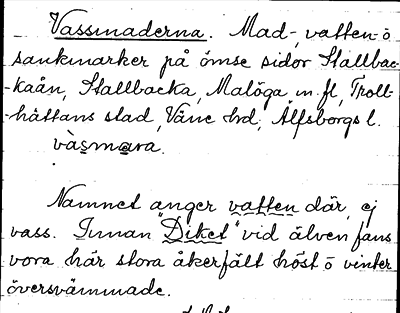 Vassmaderna. Mad-, vatten- o
sankmarker på ömse sidor Stallbac-
-kaån, Stallbacka, Malöga m. fl, Troll-
-hättans stad, Väne hd, Älfsborgs l.
vàsmara.
Namnet anger vatten där, ej
vass. Innan "Diket" vid älven fans
vora här stora åkerfält höst o vinter
översvämmade.